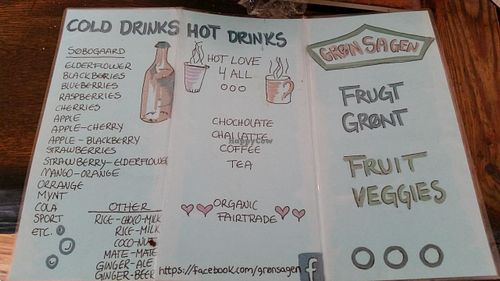 COLD DRINKS
SØBOGAARD
ELDERFLOWER
BLACKBERRIES
BLUEBERRIES
RASPBERRIES
CHERRIES
APPLE
APPLE-CHERRY
APPLE-BLACKBERRY
STRAWBERRIES
STRAWBERRY-ELDERFLOWER
MANGO-ORANGE
ORRANGE
MYNT
COLA
SPORT
ETC.
OTHER
RICE-CHOCO-MILK
RICE-MILK
COCO-NUT
MATE-MATE
GINGER-ALE
GINGER-BEER
HOT DRINKS
HOT LOVE
4 ALL
CHOCHOLATE
CHAI LATTE
HappyCow
COFFEE
TEA
ORGANIC
FAIRTRADE
https://facebook.com/grønsagen
f
GRØNSAGEN
FRUGT
GRØNT
FRUIT
VEGGIES